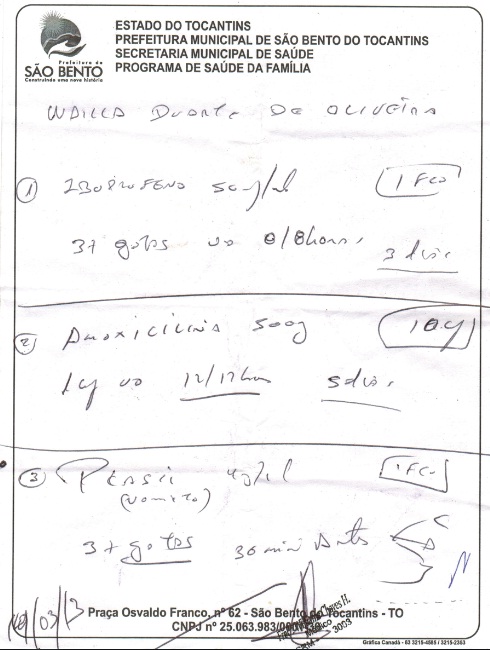 ESTADO DO TOCANTINS
PREFEITURA MUNICIPAL DE SÃO BENTO DO TOCANTINS
SECRETARIA MUNICIPAL DE SAÚDE
PROGRAMA DE SAÚDE DA FAMÍLIA
Prefeitura de
SÃO BENTO
Construindo uma nova história
DUARTE DE OLIVEIRA
1 IBUPROFENO 50mg/ml 1 FCO
37 gotas vo 8/8horas 3 dias
2 Amoxicilina 500g 10cy
1cy vo 12/12hs 5dias
3 Plasil 4g/ml 1FCO
(vomito)
37 gotas 30 min Antes C
A
J
/03/13
Praça Osvaldo Franco, nº 62 - São Bento do Tocantins - TO
CNPJ nº 25.063.983/
Médico
CRM - 3003
Gráfica Canadá - 63 3215-4885 / 3215-2363